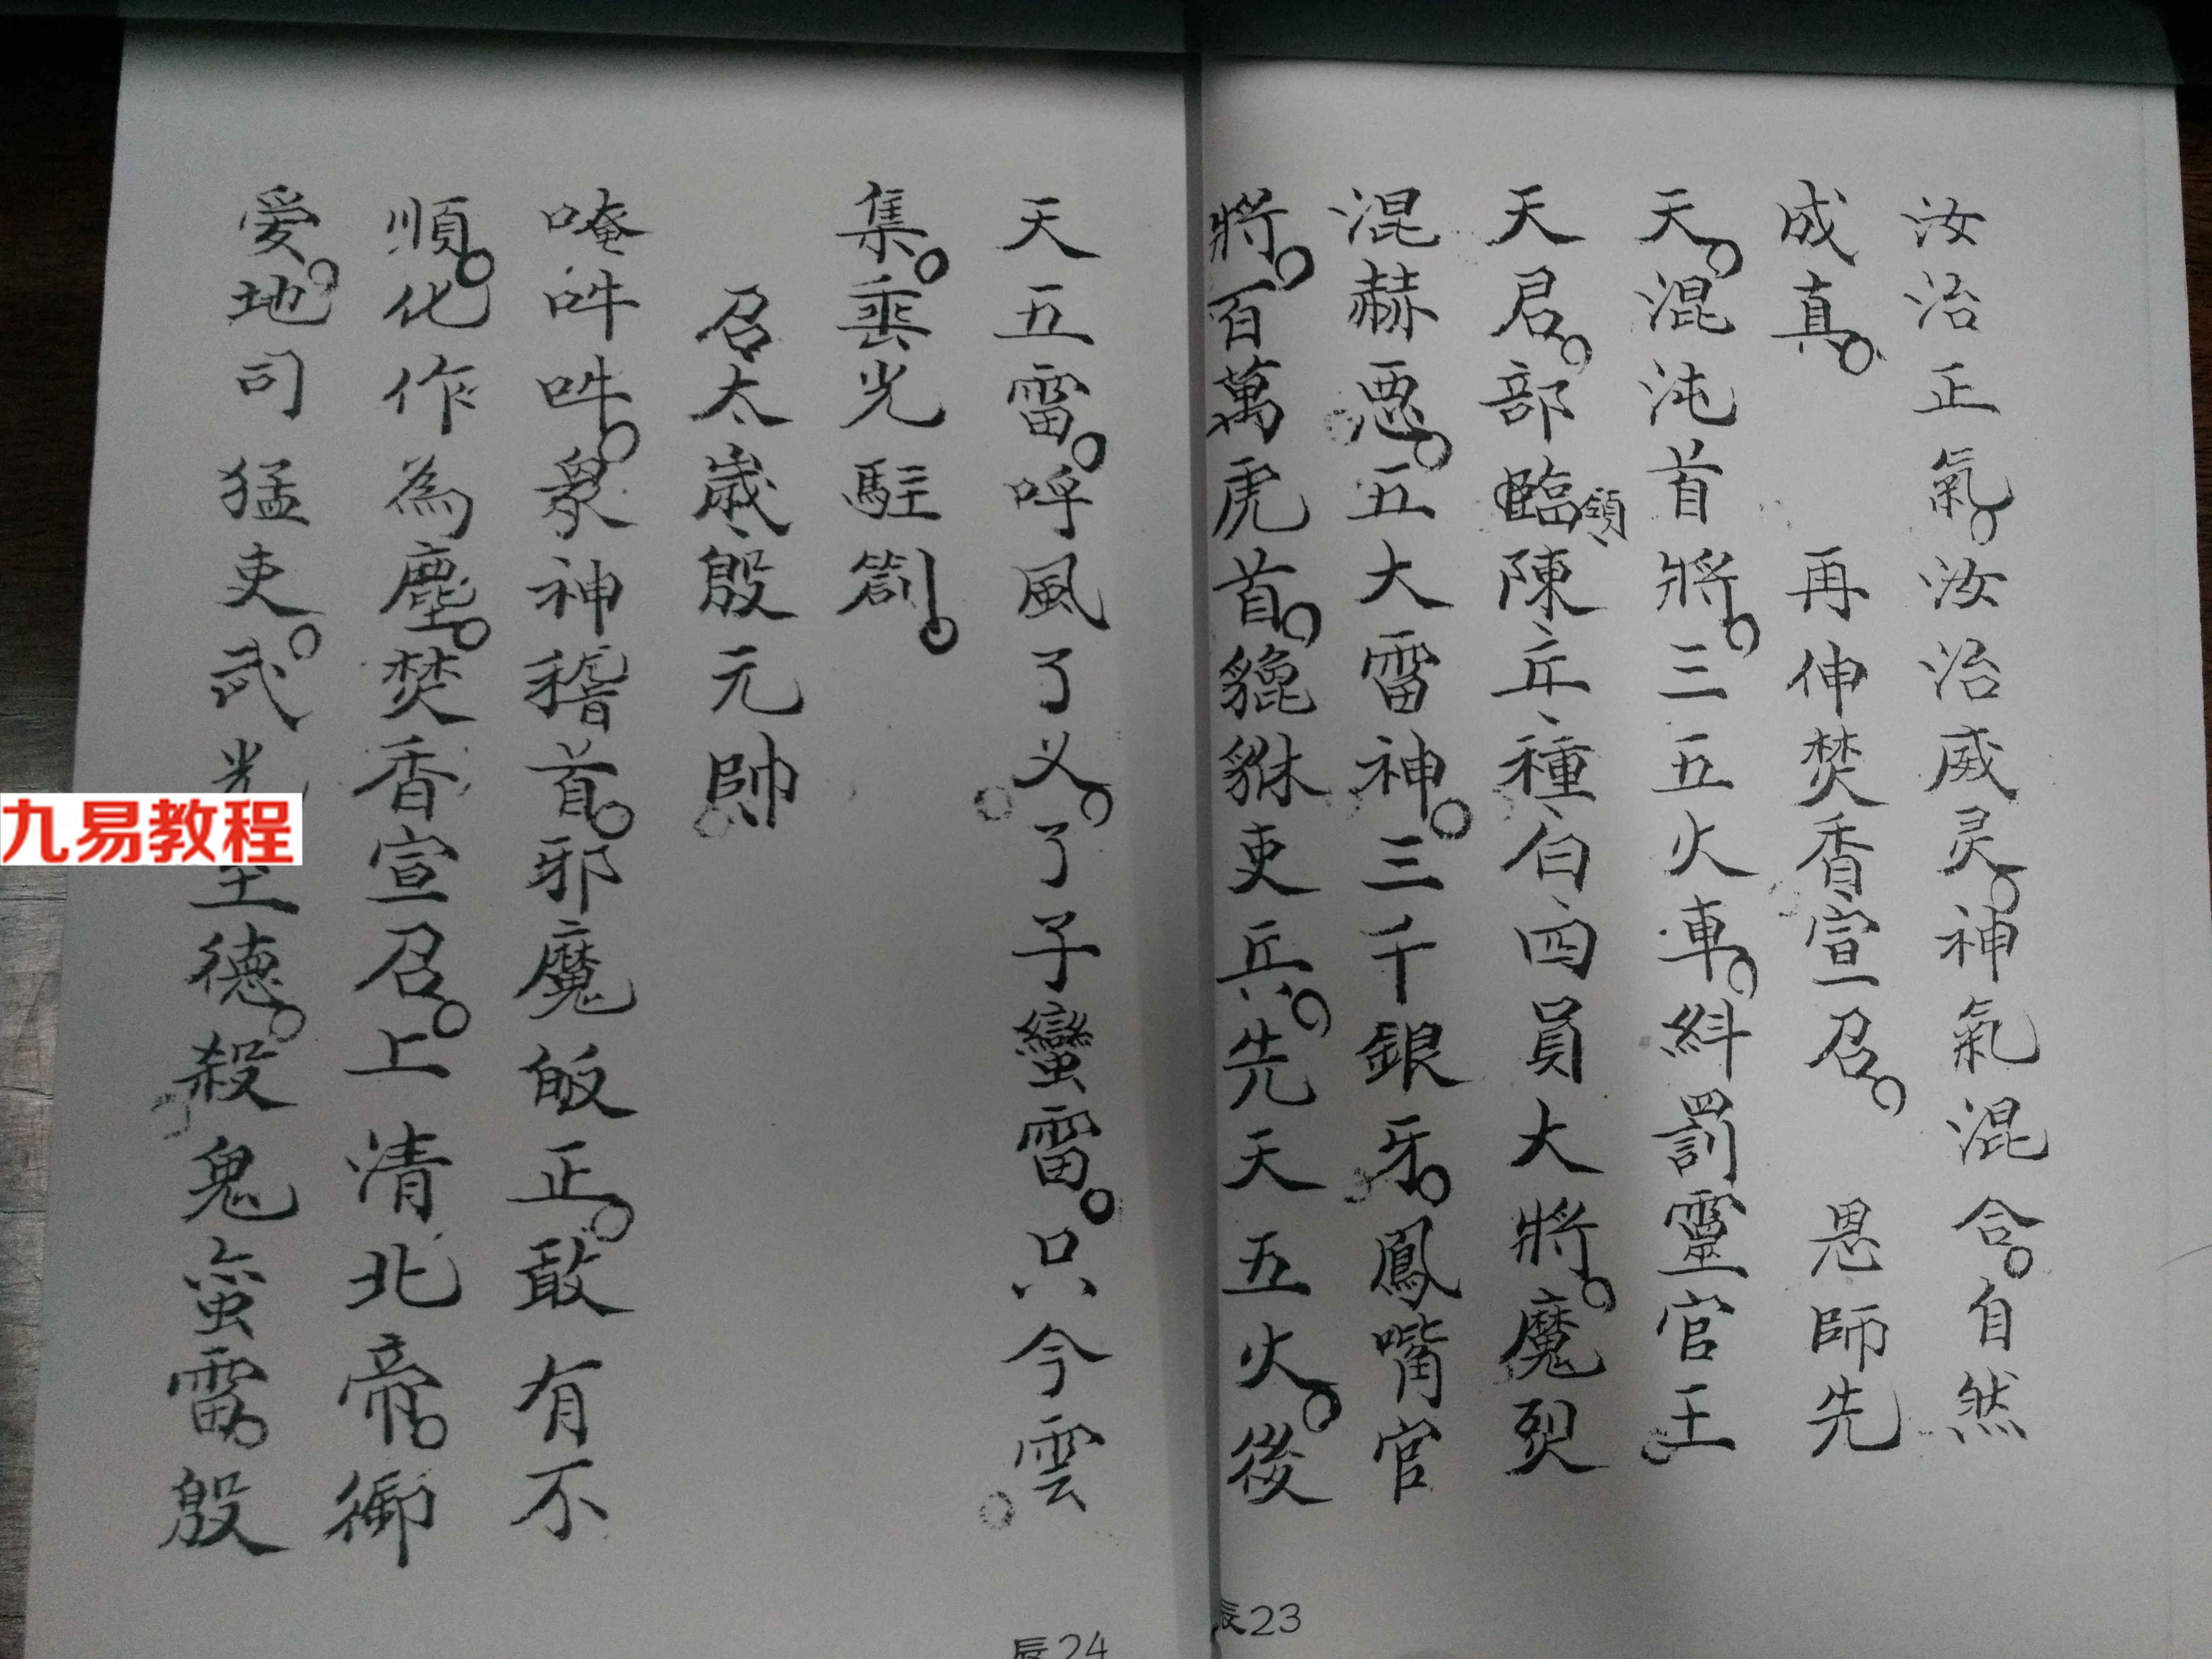 汝治正氣。汝治威灵。神氣混合。自然
成真。再伸焚香宣召。恩師先
天。混沌首將。三五火車。糾罰靈官王
天君。部臨領陳丘種白四員大將。魔烈
混赫惡。五大雷神。三千銀牙。鳳嘴官
將。百萬虎首。貔貅吏兵。先天五火。後
天五雷。呼風了义。了子蠻雷。只今雲
集。乗光駐劄。
召太歲殷元帥
唵吽吽。衆神稽首。邪魔皈正。敢有不
順。化作為塵。焚香宣召。上清北帝。御
爱。地司猛吏。武光 德。殺鬼蛮雷。殷
辰23
辰24
九易教程